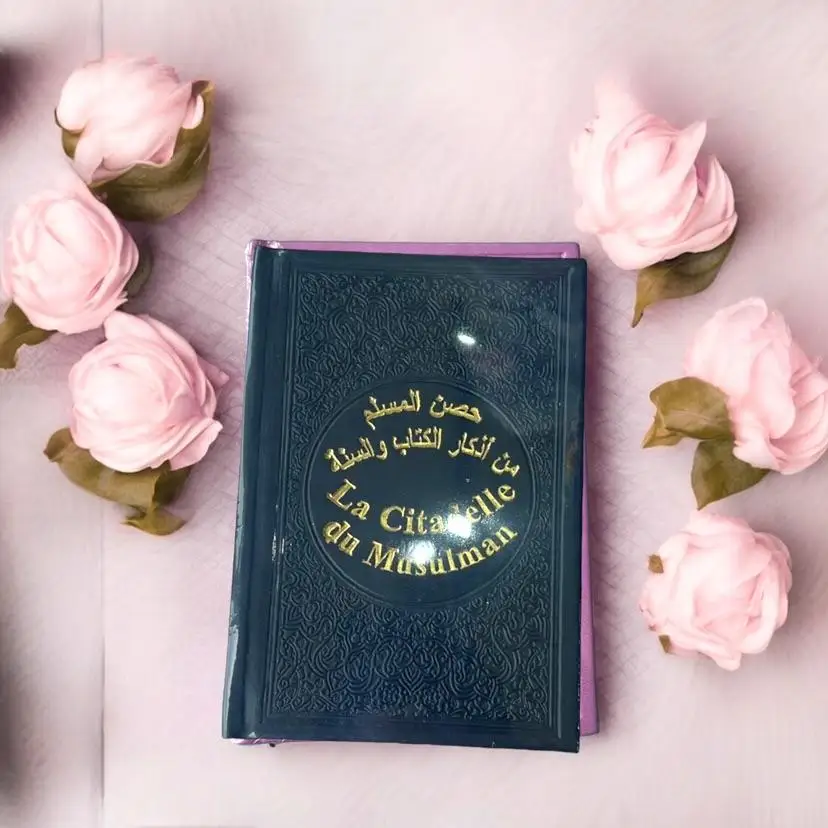 حصن المسلم
من أذكار الكتاب والسنة
La Citadelle
du Musulman